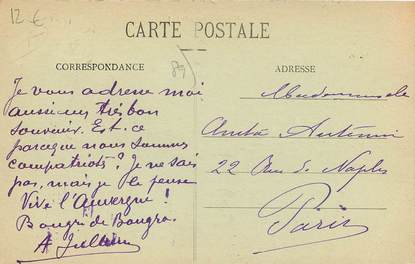 12 €
CARTE POSTALE
CORRESPONDANCE
ADRESSE
Je vous adresse moi
aussi un très bon
souvenir. Est-ce
parceque nous sommes
compatriots? Je ne sais
pas, mais je le pense
Vive l'Auvergne!
Bougri de Bougra.
Mademoiselle
22 Rue de Naples
Paris